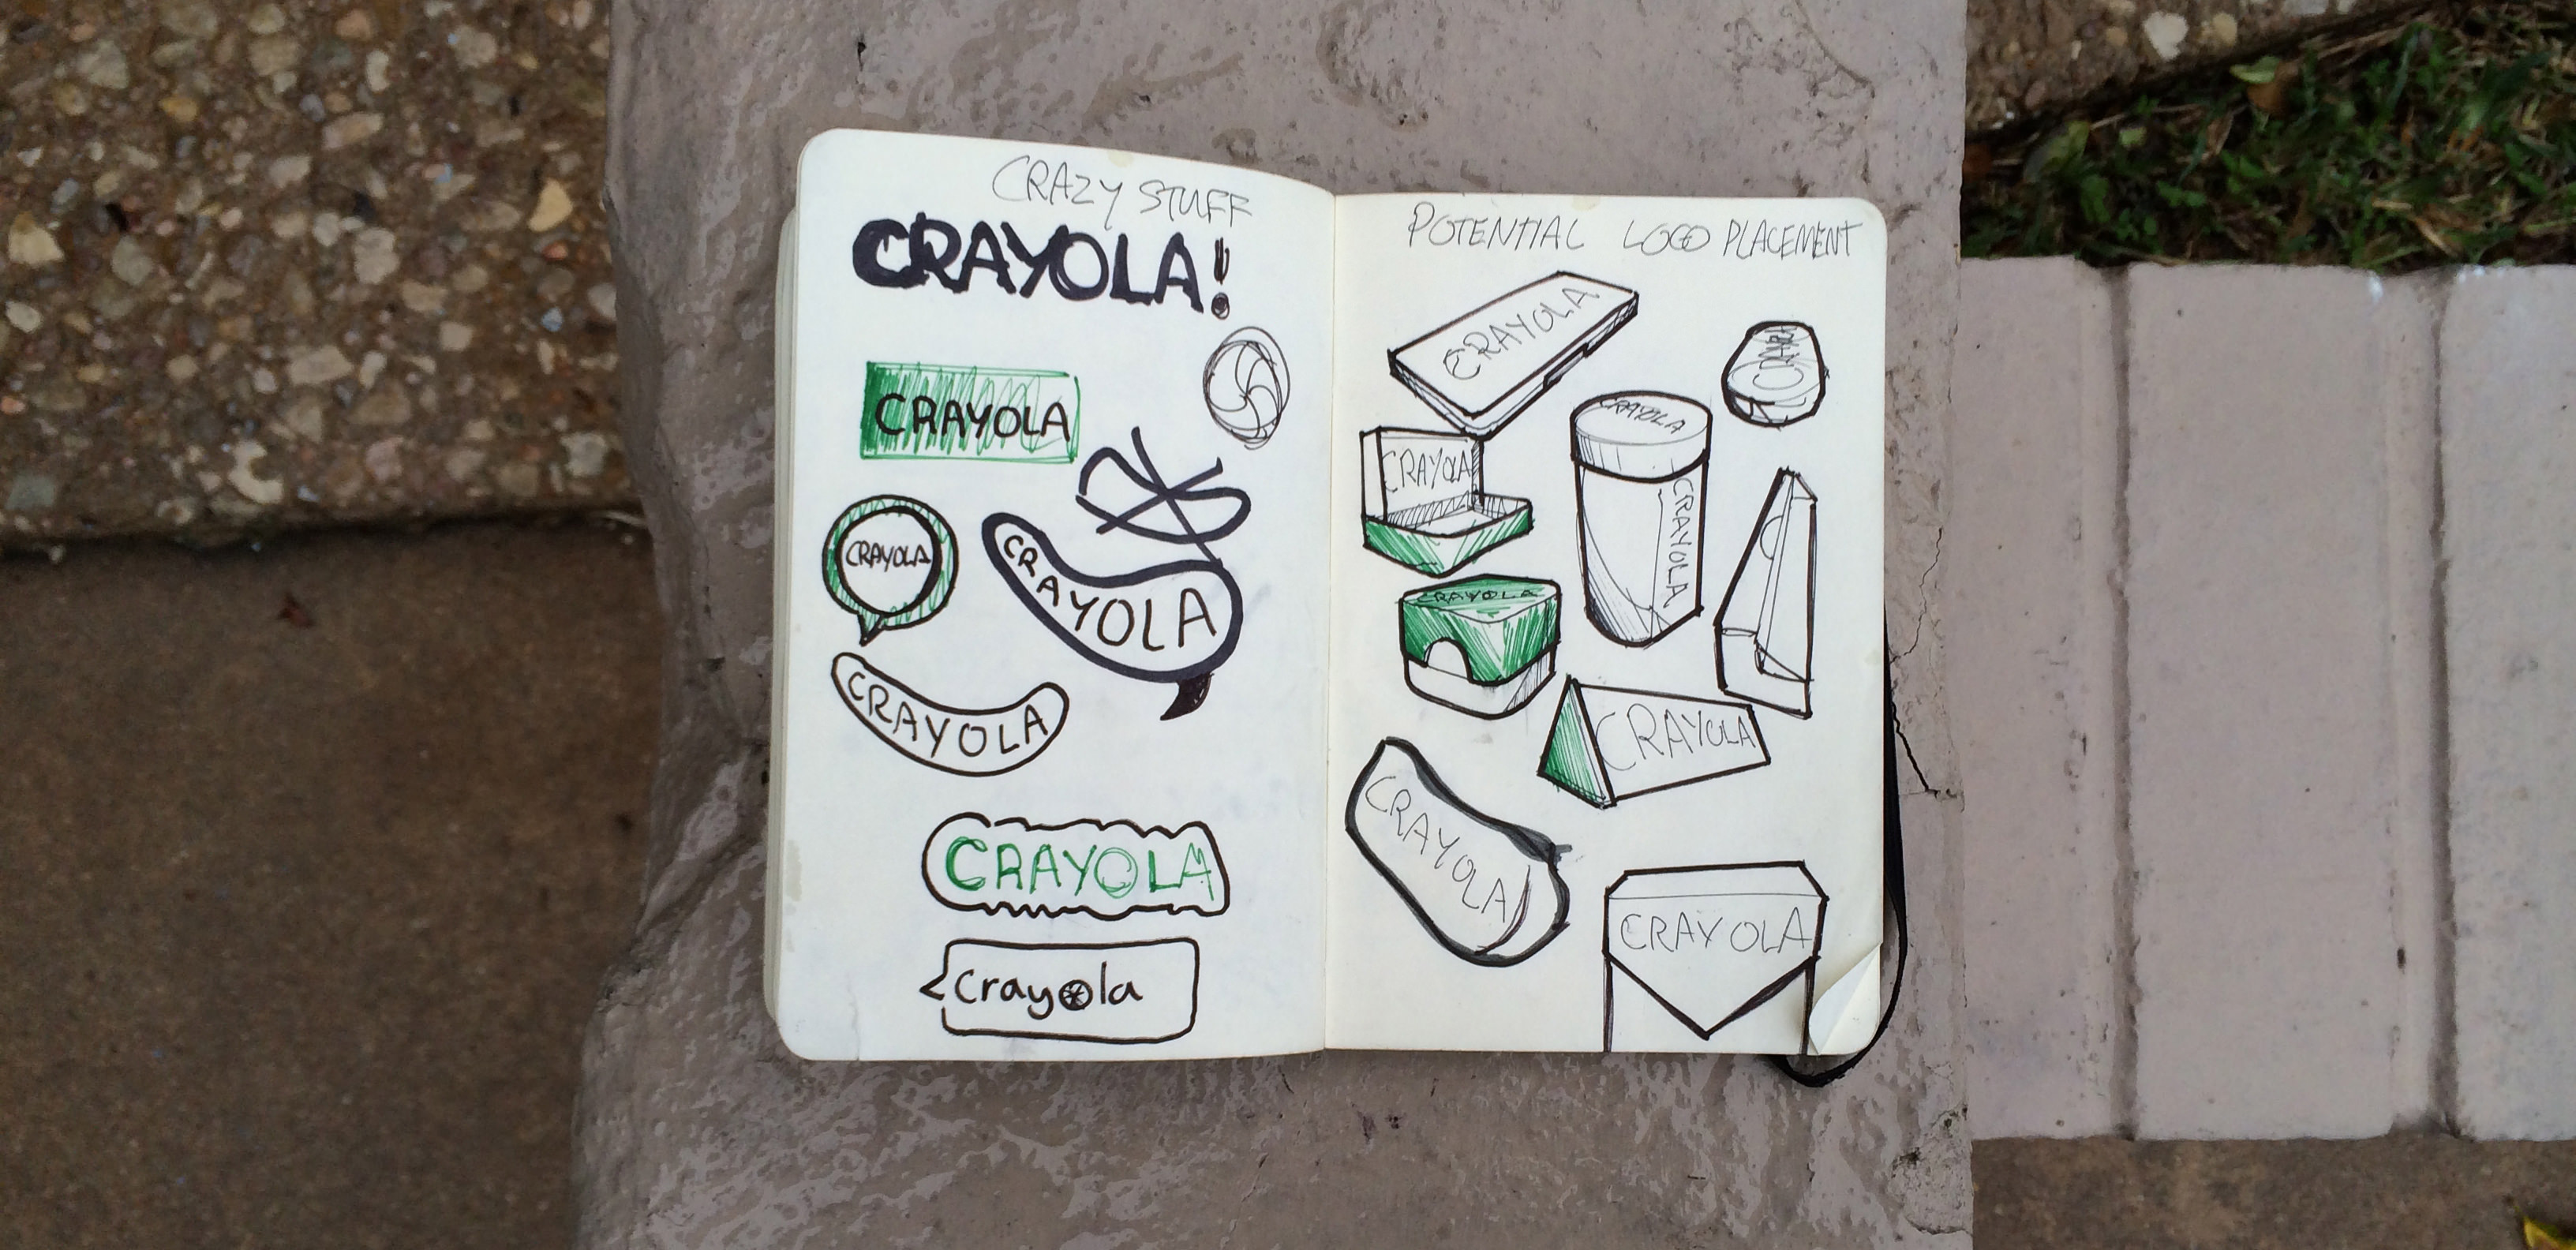 CRAZY STUFF
CRAYOLA!
CRAYOLA
CRAYOLA
CRAYOLA
CRAYOLA
CRAYOLA
crayola
POTENTIAL LOGO PLACEMENT
CRAYOLA
CRAYOLA
CRAYOLA
CRAYOLA
CRAYOLA
CRAYOLA
CRAYOLA
CRAYOLA